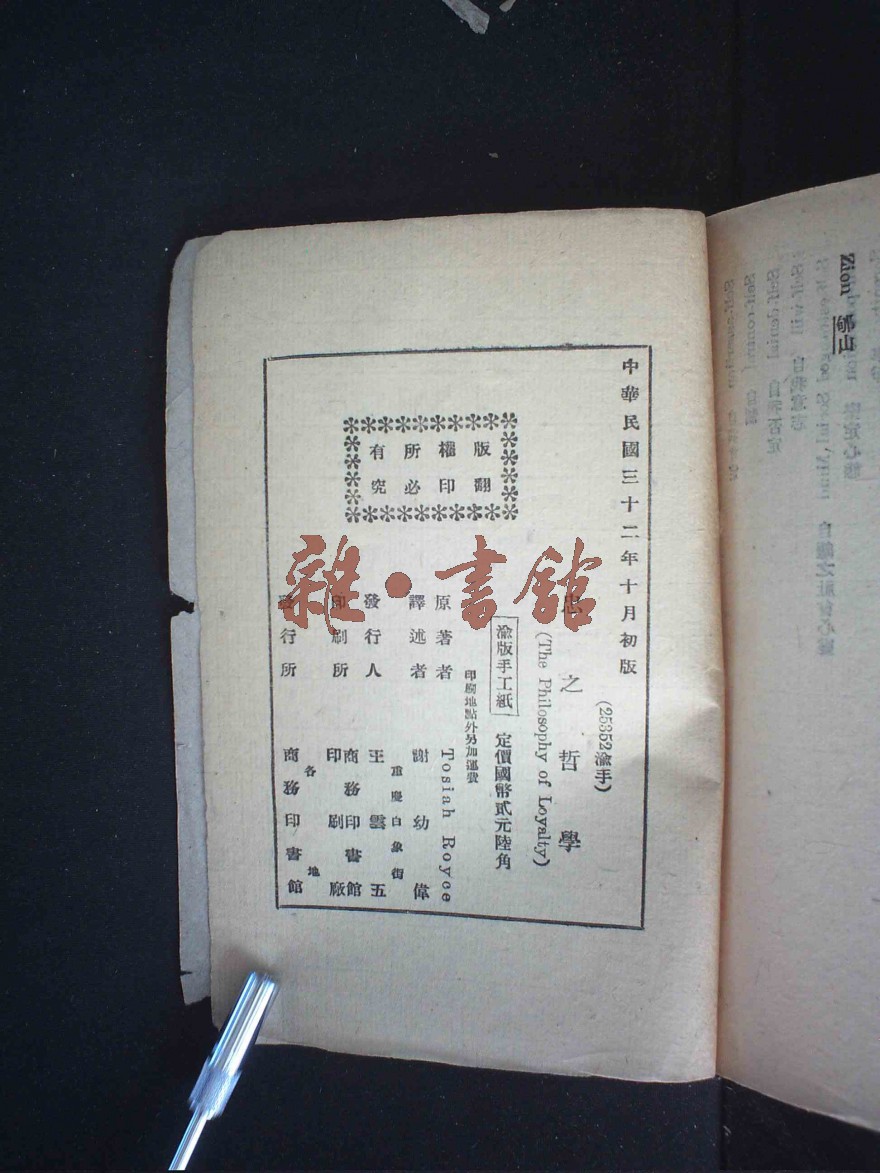 中華民國三十二年十月初版
(25352渝手)
忠之哲學
(The Philosophy of Loyalty)
渝版手工紙 定價國幣貳元陸角
印刷地點外另加運費
原著者 Tosiah Royce
譯述者 謝幼偉
重慶白象街
發行人 王雲五
印刷所 商務印書館
印刷廠
各地
發行所 商務印書館
版權所有
翻印必究
雜·書館
Zion 郇山